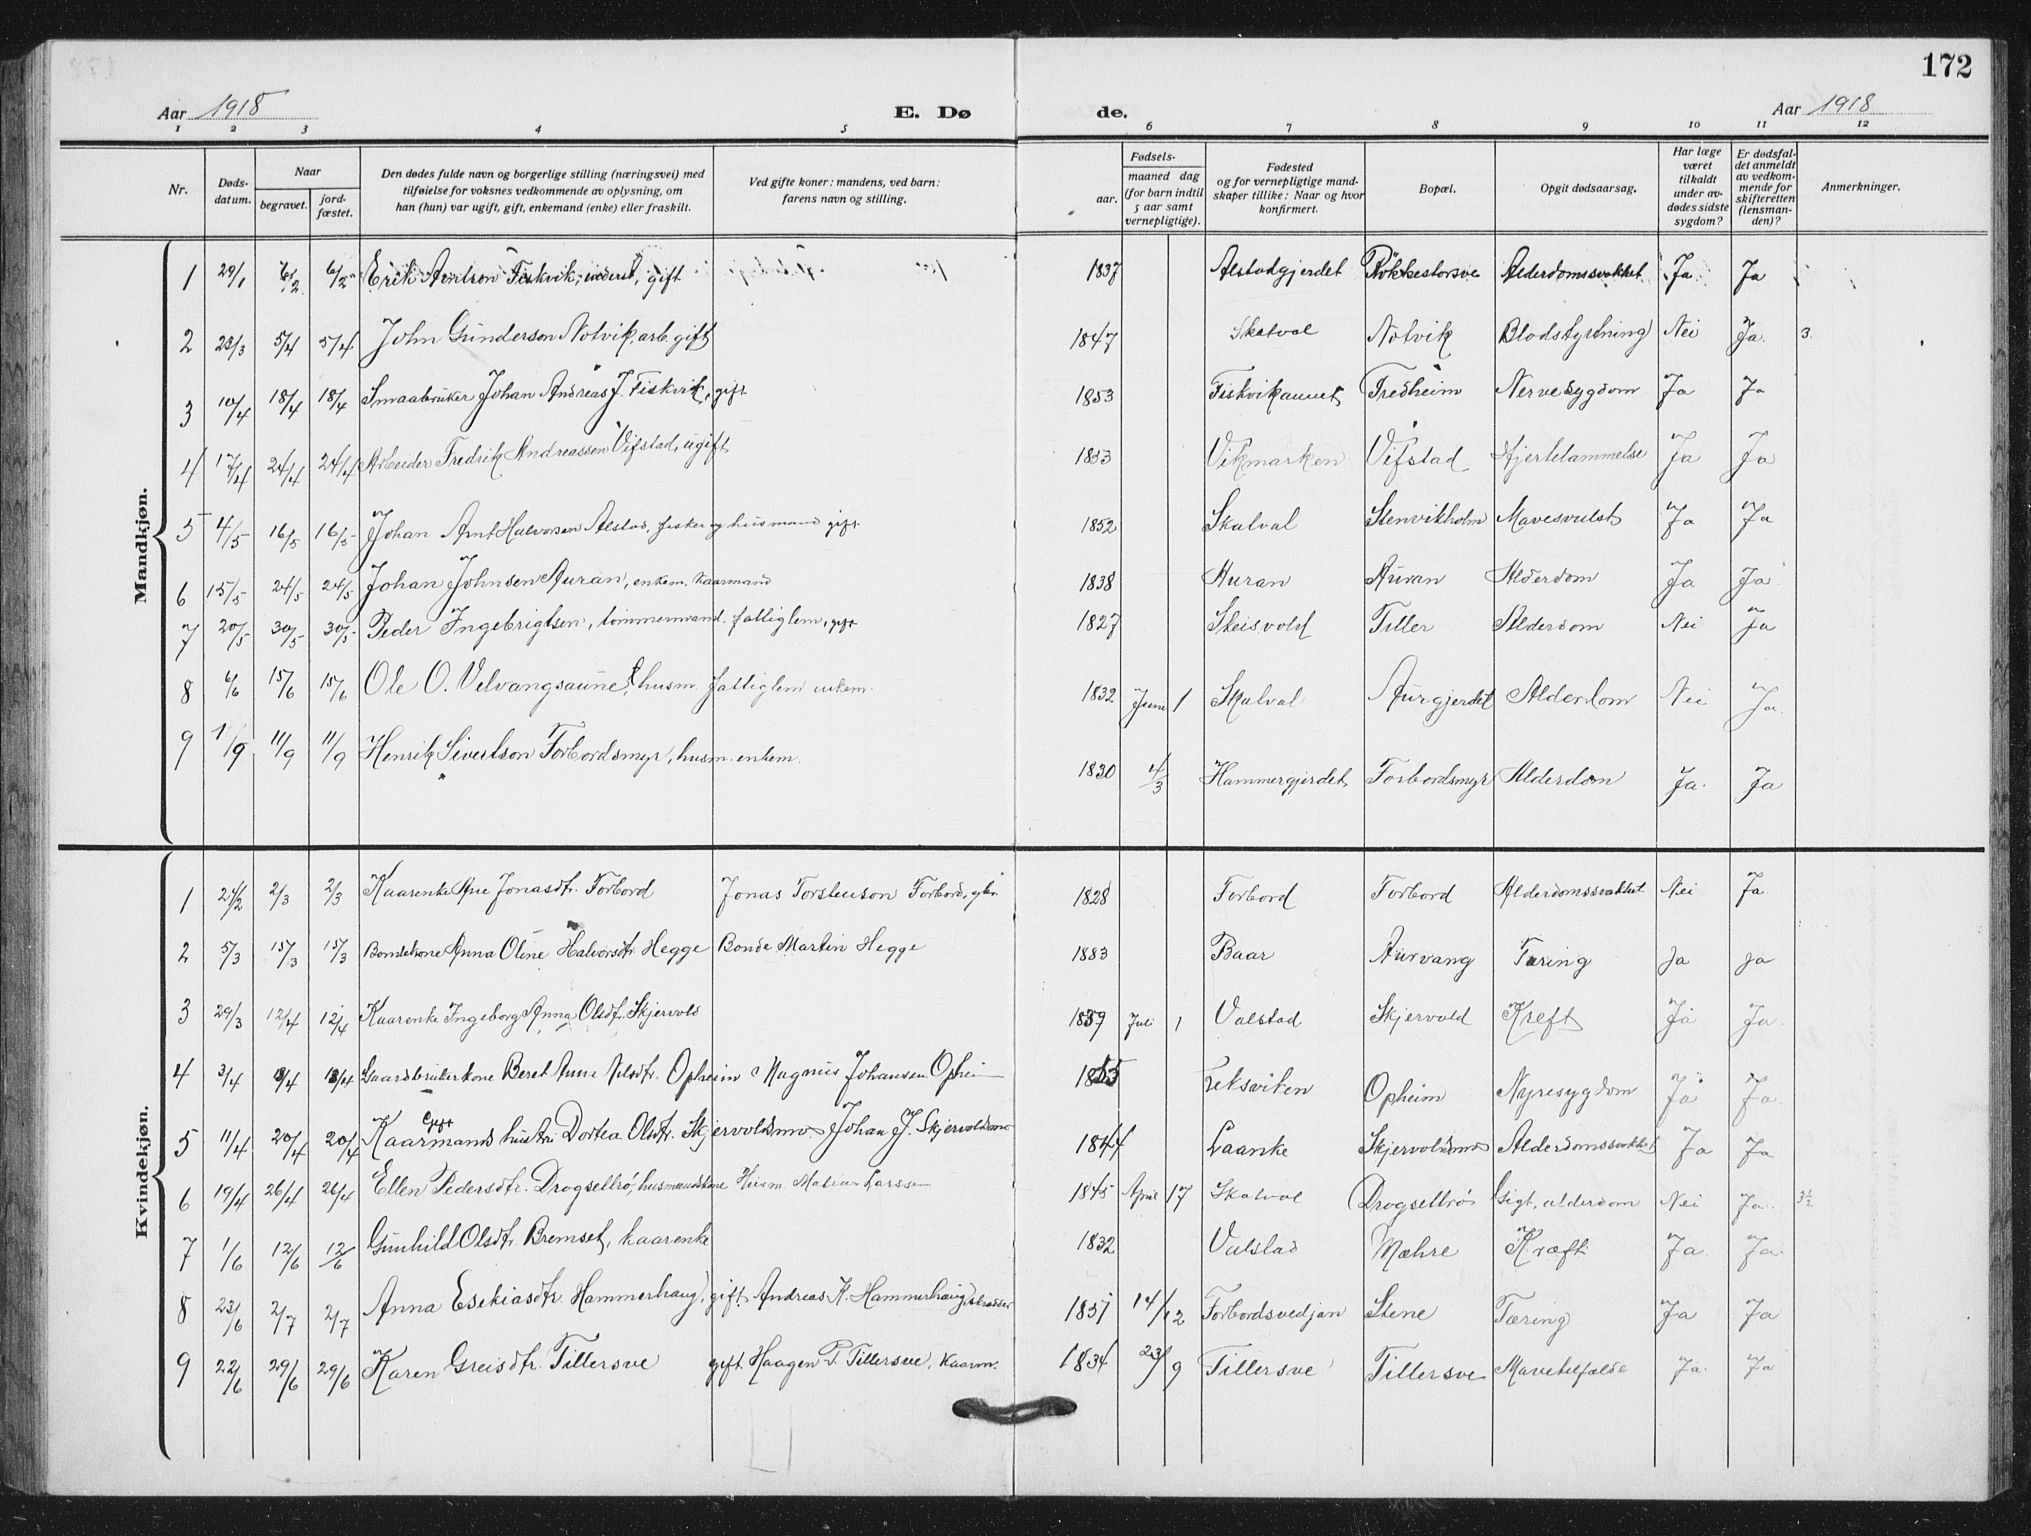 172
Aar 1918 E. Dø de. Aar 1918
1 2 3 4 5 6 7 8 9 10 11 12
Nr. Døds-datum. Naar begravet. jord-fæstet. Den dødes fulde navn og borgerlige stilling (næringsvei) med tilføielse for voksnes vedkommende av oplysning, om han (hun) var ugift, gift, enkemand (enke) eller fraskilt. Ved gifte koner: mandens, ved barn: farens navn og stilling. Fødsels- aar. maaned dag (for barn indtil 5 aar samt vernepligtige). Fødested og for vernepligtige mand-skaper tillike: Naar og hvor konfirmert. Bopæl. Opgit dødsaarsag. Har læge været tilkaldt under av-dødes sidste sygdom? Er dødsfal-det anmeldt av vedkom-mende for skifteretten (lensman-den)? Anmerkninger.
Mandkjøn.
1 29/1 6/2 6/2 Erik Arntson Fiskvik, inderst, gift 1837 Alstadgjerdet Alderdomssvakhet Ja Ja
2 23/3 5/4 5/4 John Gunderson Notvik, arb. gift 1847 Skatval Notvik Blodstyrtning Nei Ja. 3.
3 10/4 18/4 18/4 Smaabruker Johan Andreas J. Fiskvik, gift 1853 Fiskvikaunet Fredheim Nervesygdom Ja Ja
4 17/4 24/4 24/4 Arbeider Fredrik Andreassen Vifstad, ugift 1853 Vikmarken Vifstad Hjertelammelse Ja Ja
5 4/5 16/5 16/5 Johan Arnt Halvorsen Alstad, fisker og husmand gift 1852 Skatval Stenvikholm Mavesvulst Ja Ja
6 15/5 24/5 24/5 Johan Johnsen Auran, enkem. kaarmand 1838 Auran Auran Alderdom Ja Ja
7 20/5 30/5 30/5 Peder Ingebrigtsen, tømmermand. fattiglem, gift 1827 Skeisvold Tiller Alderdom Nei Ja
8 6/6 15/6 15/6 Ole O. Velvangsaune, husm. fattiglem enkem. 1832 Juni 1 Skatval Aurgjerdet Alderdom Nei Ja.
9 1/9 11/9 11/9 Henrik Sivertson Forbordsmyr, husm. enkem. 1830 4/3 Hammergjerdet Forbordsmyr Alderdom Ja. Ja
Kvindekjøn.
1 24/2 2/3 2/3 Kaarenke Ane Jonasdtr. Forbord Jonas Torstenson Forbord, gbr. 1828 Forbord Forbord Alderdomssvakhet Nei Ja.
2 5/3 15/3 15/3 Bondekone Anna Oline Halvorsdtr. Hegge Bonde Martin Hegge 1883 Baar Aurvang Tæring Ja Ja
3 29/3 12/4 12/4 Kaarenke Ingeborg Anna Olsdtr. Skjervold 1839 Juli 1 Valstad Skjervold Kreft Ja Ja.
4 3/4 13/4 13/4 Gaardbrukerkone Beret Anne Nilsdtr. Opheim Magnus Johansen Opheim Leksviken Opheim Nyresygdom Ja Ja.
5 11/4 20/4 20/4 Kaarmands hustru Dortea Olsdtr. Skjervoldsmo. Johan J. Skjervoldsmo 1844 Laanke Skjervoldsmo Alderdomssvakhet Ja Ja
6 19/4 26/4 26/4 Ellen Pedersdtr. Drogsetbrø, husmandskone Husm. Larssen 1845 April 17 Skatval Drogsetbrø Gigt, alderdom Nei Ja. 3½
7 1/6 12/6 12/6 Gunhild Olsdtr. Bremset, kaarenke 1832 Valstad Mæhre Kræft Ja. Ja.
8 23/6 2/7 2/7 Anna Esekiasdtr. Hammerhaug, gift. Andreas K. Hammerhaug 14/12 Forbordsvedjan Stene Tæring Ja Ja
9 22/6 29/6 29/6 Karen Greisdtr. Tillersve gift. Haagen P. Tillersve, kaarm. 1834 23/9 Tillersve Tillersve Mavetilfælde Ja. Ja